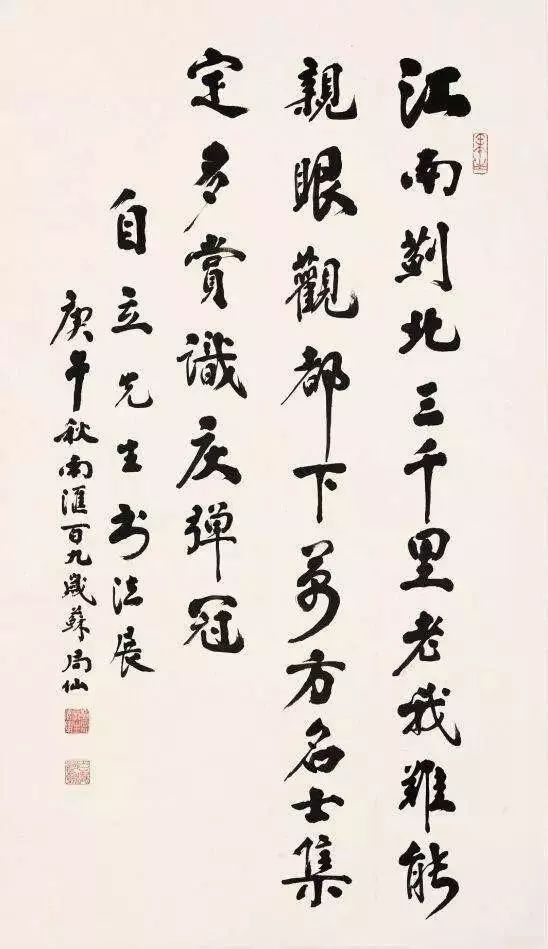 江南薊北三千里老我難能
親眼觀都下萬方名士集
定多賞識慶彈冠
自立先生書法展
庚午秋南匯百九歲蘇局仙